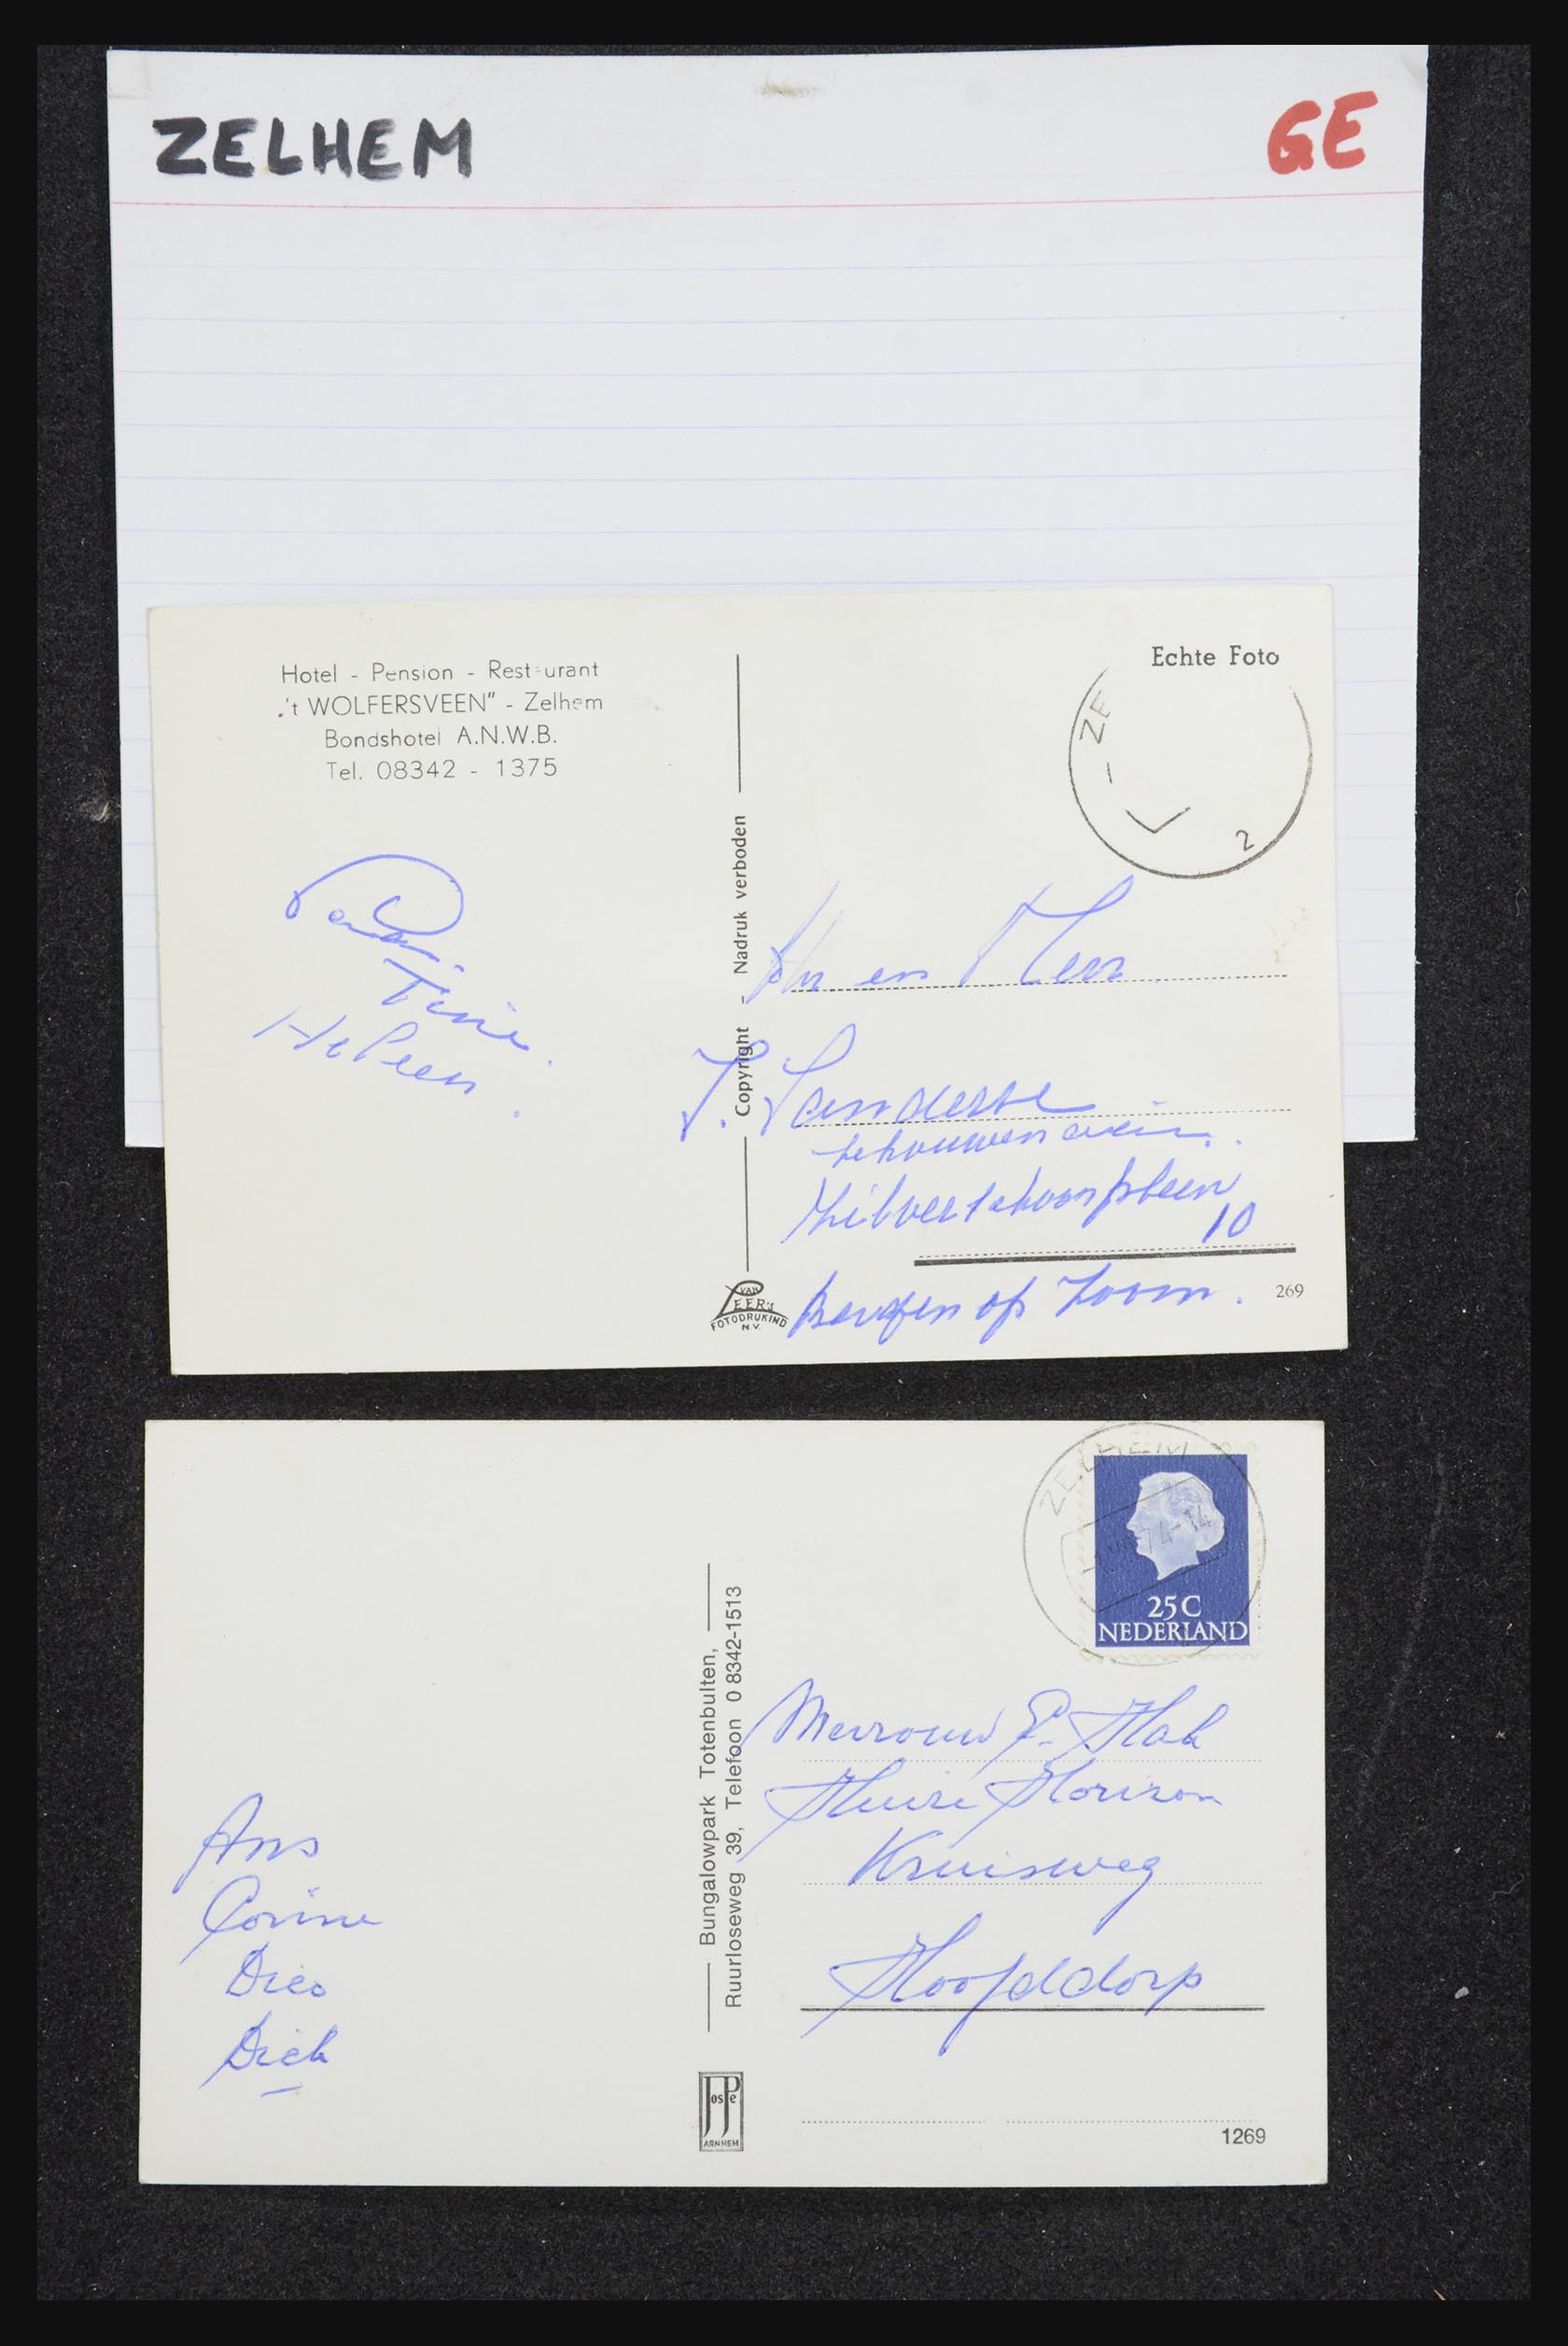 ZELHEM
GE
Hotel - Pension - Rest urant
„'t WOLFERSVEEN" - Zelhem
Bondshotel A.N.W.B.
Tel. 08342 - 1375
Echte Foto
ZE
2
Copyright - Nadruk verboden
Tini
Heleen
en Mevr
J. Sanderse
Zilverschoonplein
10
Bergen op Zoom.
VAN LEER'S
FOTODRUKIND
N.V.
269
ZELHEM
74-14
25C
NEDERLAND
Bungalowpark Totenbulten,
Ruurloseweg 39, Telefoon 0 8342-1513
Mevrouw P. Hak
Huize Horizon
Kruisweg
Hoofddorp
Ans
Corine
Dico
Dick
JosPe
ARNHEM
1269